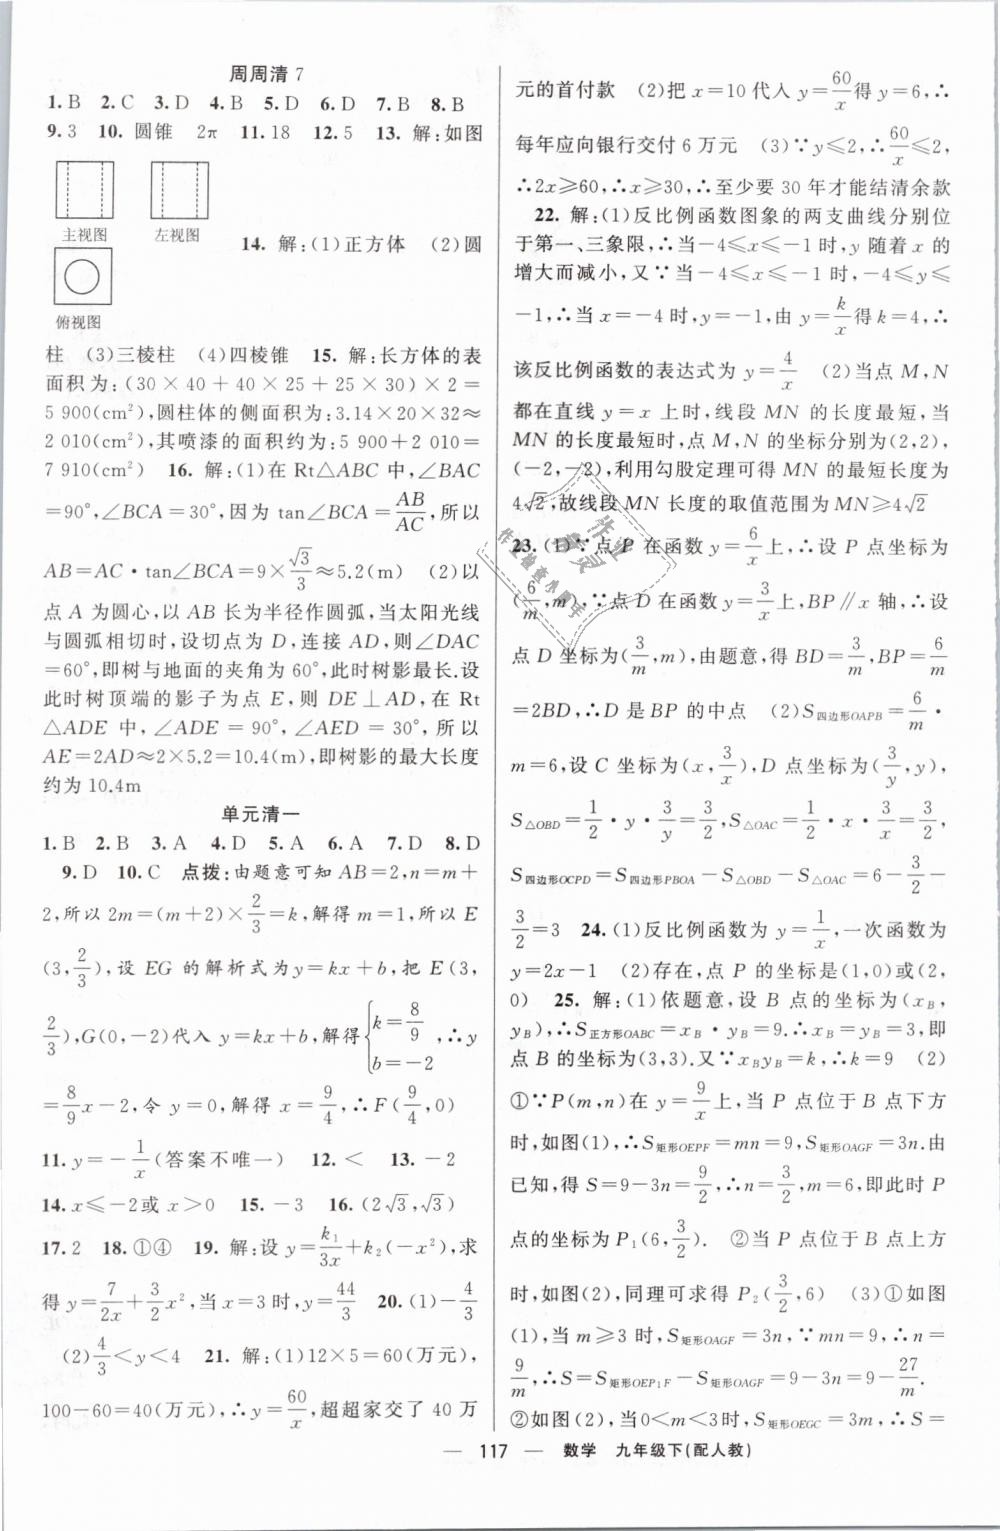 周周清 7
1. B 2. C 3. D 4. B 5. D 6. D 7. B 8. B
9. 3 10. 圆锥 2π 11. 18 12. 5 13. 解:如图
主视图 左视图
14. 解:(1)正方体 (2)圆
俯视图
柱 (3)三棱柱 (4)四棱锥 15. 解:长方体的表
面积为:(30×40+40×25+25×30)×2=
5 900(cm²),圆柱体的侧面积为:3.14×20×32≈
2 010(cm²),其喷漆的面积约为:5 900+2 010=
7 910(cm²) 16. 解:(1)在 Rt△ABC 中,∠BAC
=90°,∠BCA=30°,因为 tan∠BCA=AB/AC,所以
AB=AC·tan∠BCA=9×√3/3≈5.2(m) (2)以
点 A 为圆心,以 AB 长为半径作圆弧,当太阳光线
与圆弧相切时,设切点为 D,连接 AD,则∠DAC
=60°,即树与地面的夹角为 60°,此时树影最长.设
此时树顶端的影子为点 E,则 DE⊥AD,在 Rt
△ADE 中,∠ADE=90°,∠AED=30°,所以
AE=2AD≈2×5.2=10.4(m),即树影的最大长度
约为 10.4m
单元清一
1. B 2. B 3. A 4. D 5. A 6. A 7. D 8. D
9. D 10. C 点拨:由题意可知 AB=2,n=m+
2,所以 2m=(m+2)×2/3=k,解得 m=1,所以 E
(3,2/3),设 EG 的解析式为 y=kx+b,把 E(3,
2/3),G(0,-2)代入 y=kx+b,解得{k=8/9 b=-2,∴y
=8/9x-2,令 y=0,解得 x=9/4,∴F(9/4,0)
11. y=-1/x(答案不唯一) 12. < 13. -2
14. x≤-2或 x>0 15. -3 16. (2√3,√3)
17. 2 18. ①④ 19. 解:设 y=k₁/3x+k₂(-x²),求
得 y=7/2x+3/2x²,当 x=3 时,y=44/3 20. (1)-4/3
(2)4/3<y<4 21. 解:(1)12×5=60(万元),
100-60=40(万元),∴y=60/x,超超家交了 40 万
元的首付款 (2)把 x=10 代入 y=60/x得 y=6,∴
每年应向银行交付 6 万元 (3)∵y≤2,∴60/x≤2,
∴2x≥60,∴x≥30,∴至少要 30 年才能结清余款
22. 解:(1)反比例函数图象的两支曲线分别位
于第一、三象限,∴当-4≤x≤-1 时,y 随着 x 的
增大而减小,又∵当-4≤x≤-1 时,-4≤y≤
-1,∴当 x=-4 时,y=-1,由 y=k/x得 k=4,∴
该反比例函数的表达式为 y=4/x (2)当点 M,N
都在直线 y=x 上时,线段 MN 的长度最短,当
MN 的长度最短时,点 M,N 的坐标分别为(2,2),
(-2,-2),利用勾股定理可得 MN 的最短长度为
4√2,故线段 MN 长度的取值范围为 MN≥4√2
23. (1)∵点 P 在函数 y=6/x上,∴设 P 点坐标为
(6/m,m).∵点 D 在函数 y=3/x上,BP∥x 轴,∴设
点 D 坐标为(3/m,m),由题意,得 BD=3/m,BP=6/m
=2BD,∴D 是 BP 的中点 (2)S四边形OAPB=6/m·
m=6,设 C 坐标为(x,3/x),D 点坐标为(3/y,y),
S△OBD=1/2·y·3/y=3/2,S△OAC=1/2·x·3/x=3/2,
S四边形OCPD=S四边形PBOA-S△OBD-S△OAC=6-3/2-
3/2=3 24. (1)反比例函数为 y=1/x,一次函数为
y=2x-1 (2)存在,点 P 的坐标是(1,0)或(2,
0) 25. 解:(1)依题意,设 B 点的坐标为(xB,
yB),∴S正方形OABC=xB·yB=9.∴xB=yB=3,即
点 B 的坐标为(3,3).又∵xByB=k,∴k=9 (2)
①∵P(m,n)在 y=9/x上,当 P 点位于 B 点下方
时,如图(1),∴S矩形OEPF=mn=9,S矩形OAGF=3n.由
已知,得 S=9-3n=9/2,∴n=3/2,m=6,即此时 P
点的坐标为 P₁(6,3/2). ②当 P 点位于 B 点上方
时,如图(2),同理可求得 P₂(3/2,6) (3)①如图
(1),当 m≥3 时,S矩形OAGF=3n,∵mn=9,∴n=
9/m,∴S=S矩形OEP₁F-S矩形OAGF=9-3n=9-27/m.
②如图(2),当0<m<3时,S矩形OEGC=3m,∴S=
作业
精灵
作业检查小助手
— 117 — 数学 九年级下(配人教)